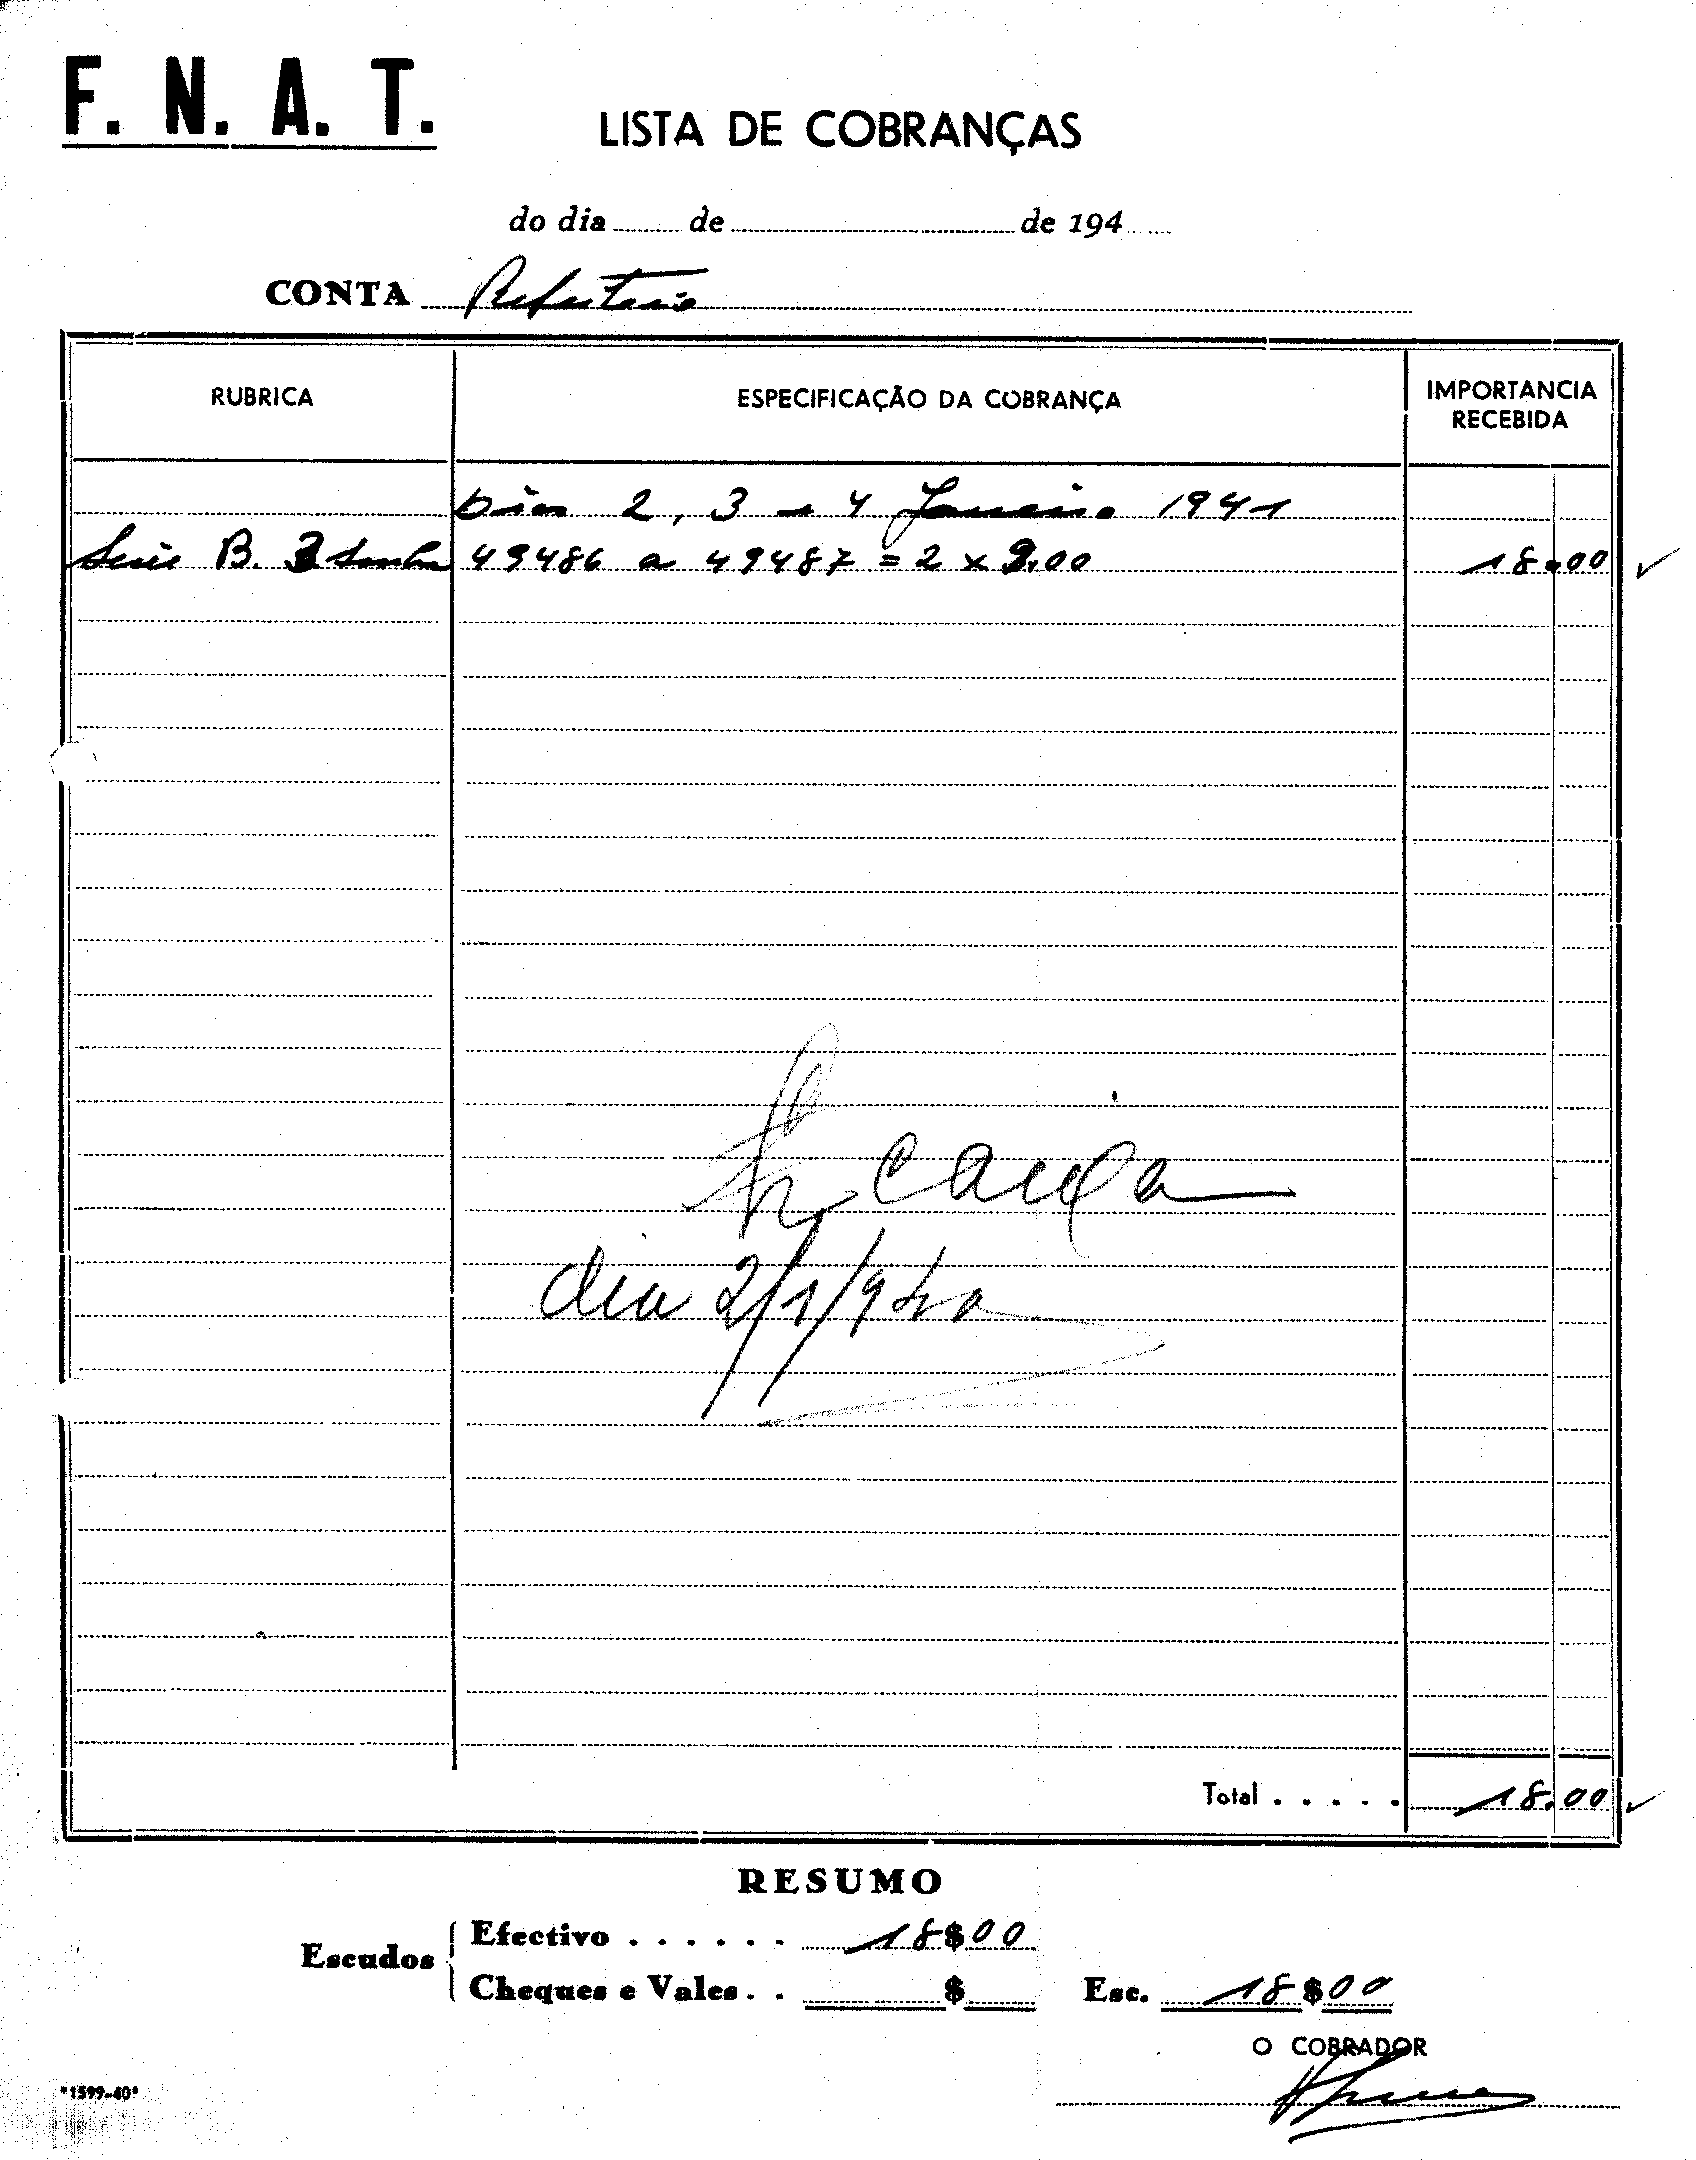 F. N. A. T.
LISTA DE COBRANÇAS
do dia ...... de .............................. de 194.....
CONTA Refeitorio
RUBRICA
ESPECIFICAÇÃO DA COBRANÇA
IMPORTANCIA RECEBIDA
Dias 2, 3 e 4 Janeiro 1941
Serie B. 2 Senhas 49486 a 49487 = 2 x 9.00 18.00
caixa
dia 2/1/940
Total . . . . . 18.00
RESUMO
Escudos
Efectivo . . . . . . 18$00
Cheques e Vales . . $
Esc. 18$00
O COBRADOR
"1599-40"